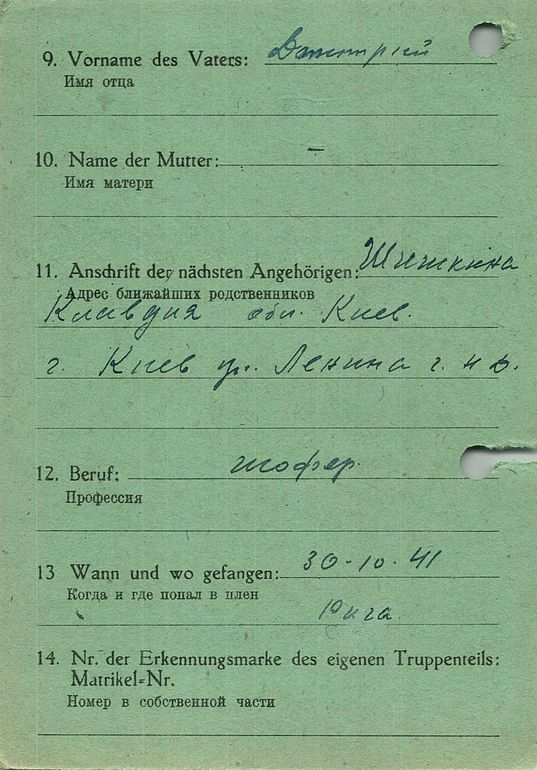 9. Vorname des Vaters: Дмитрий
Имя отца
10. Name der Mutter: –
Имя матери
11. Anschrift der nächsten Angehörigen: Шишкина
Адрес ближайших родственников
Клавдия обл. Киев.
г. Киев ул. Ленина г. н д.
12. Beruf: шофер.
Профессия
13 Wann und wo gefangen: 30-10-41
Когда и где попал в плен
Рига.
14. Nr. der Erkennungsmarke des eigenen Truppenteils:
Matrikel-Nr.
Номер в собственной части